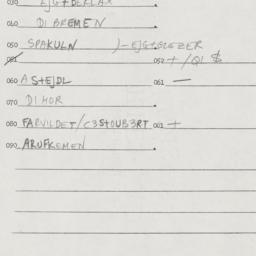 030 EJGTDERLAX
040 DI BREMEN
050 SPAKULN )-EJGTGLEZER
051 052 + /QL $
060 A STEJDL 061 —
070 DI HOR
080 FARVILDET/C3STOUB3RT 081 +
090 ARUFKEMEN